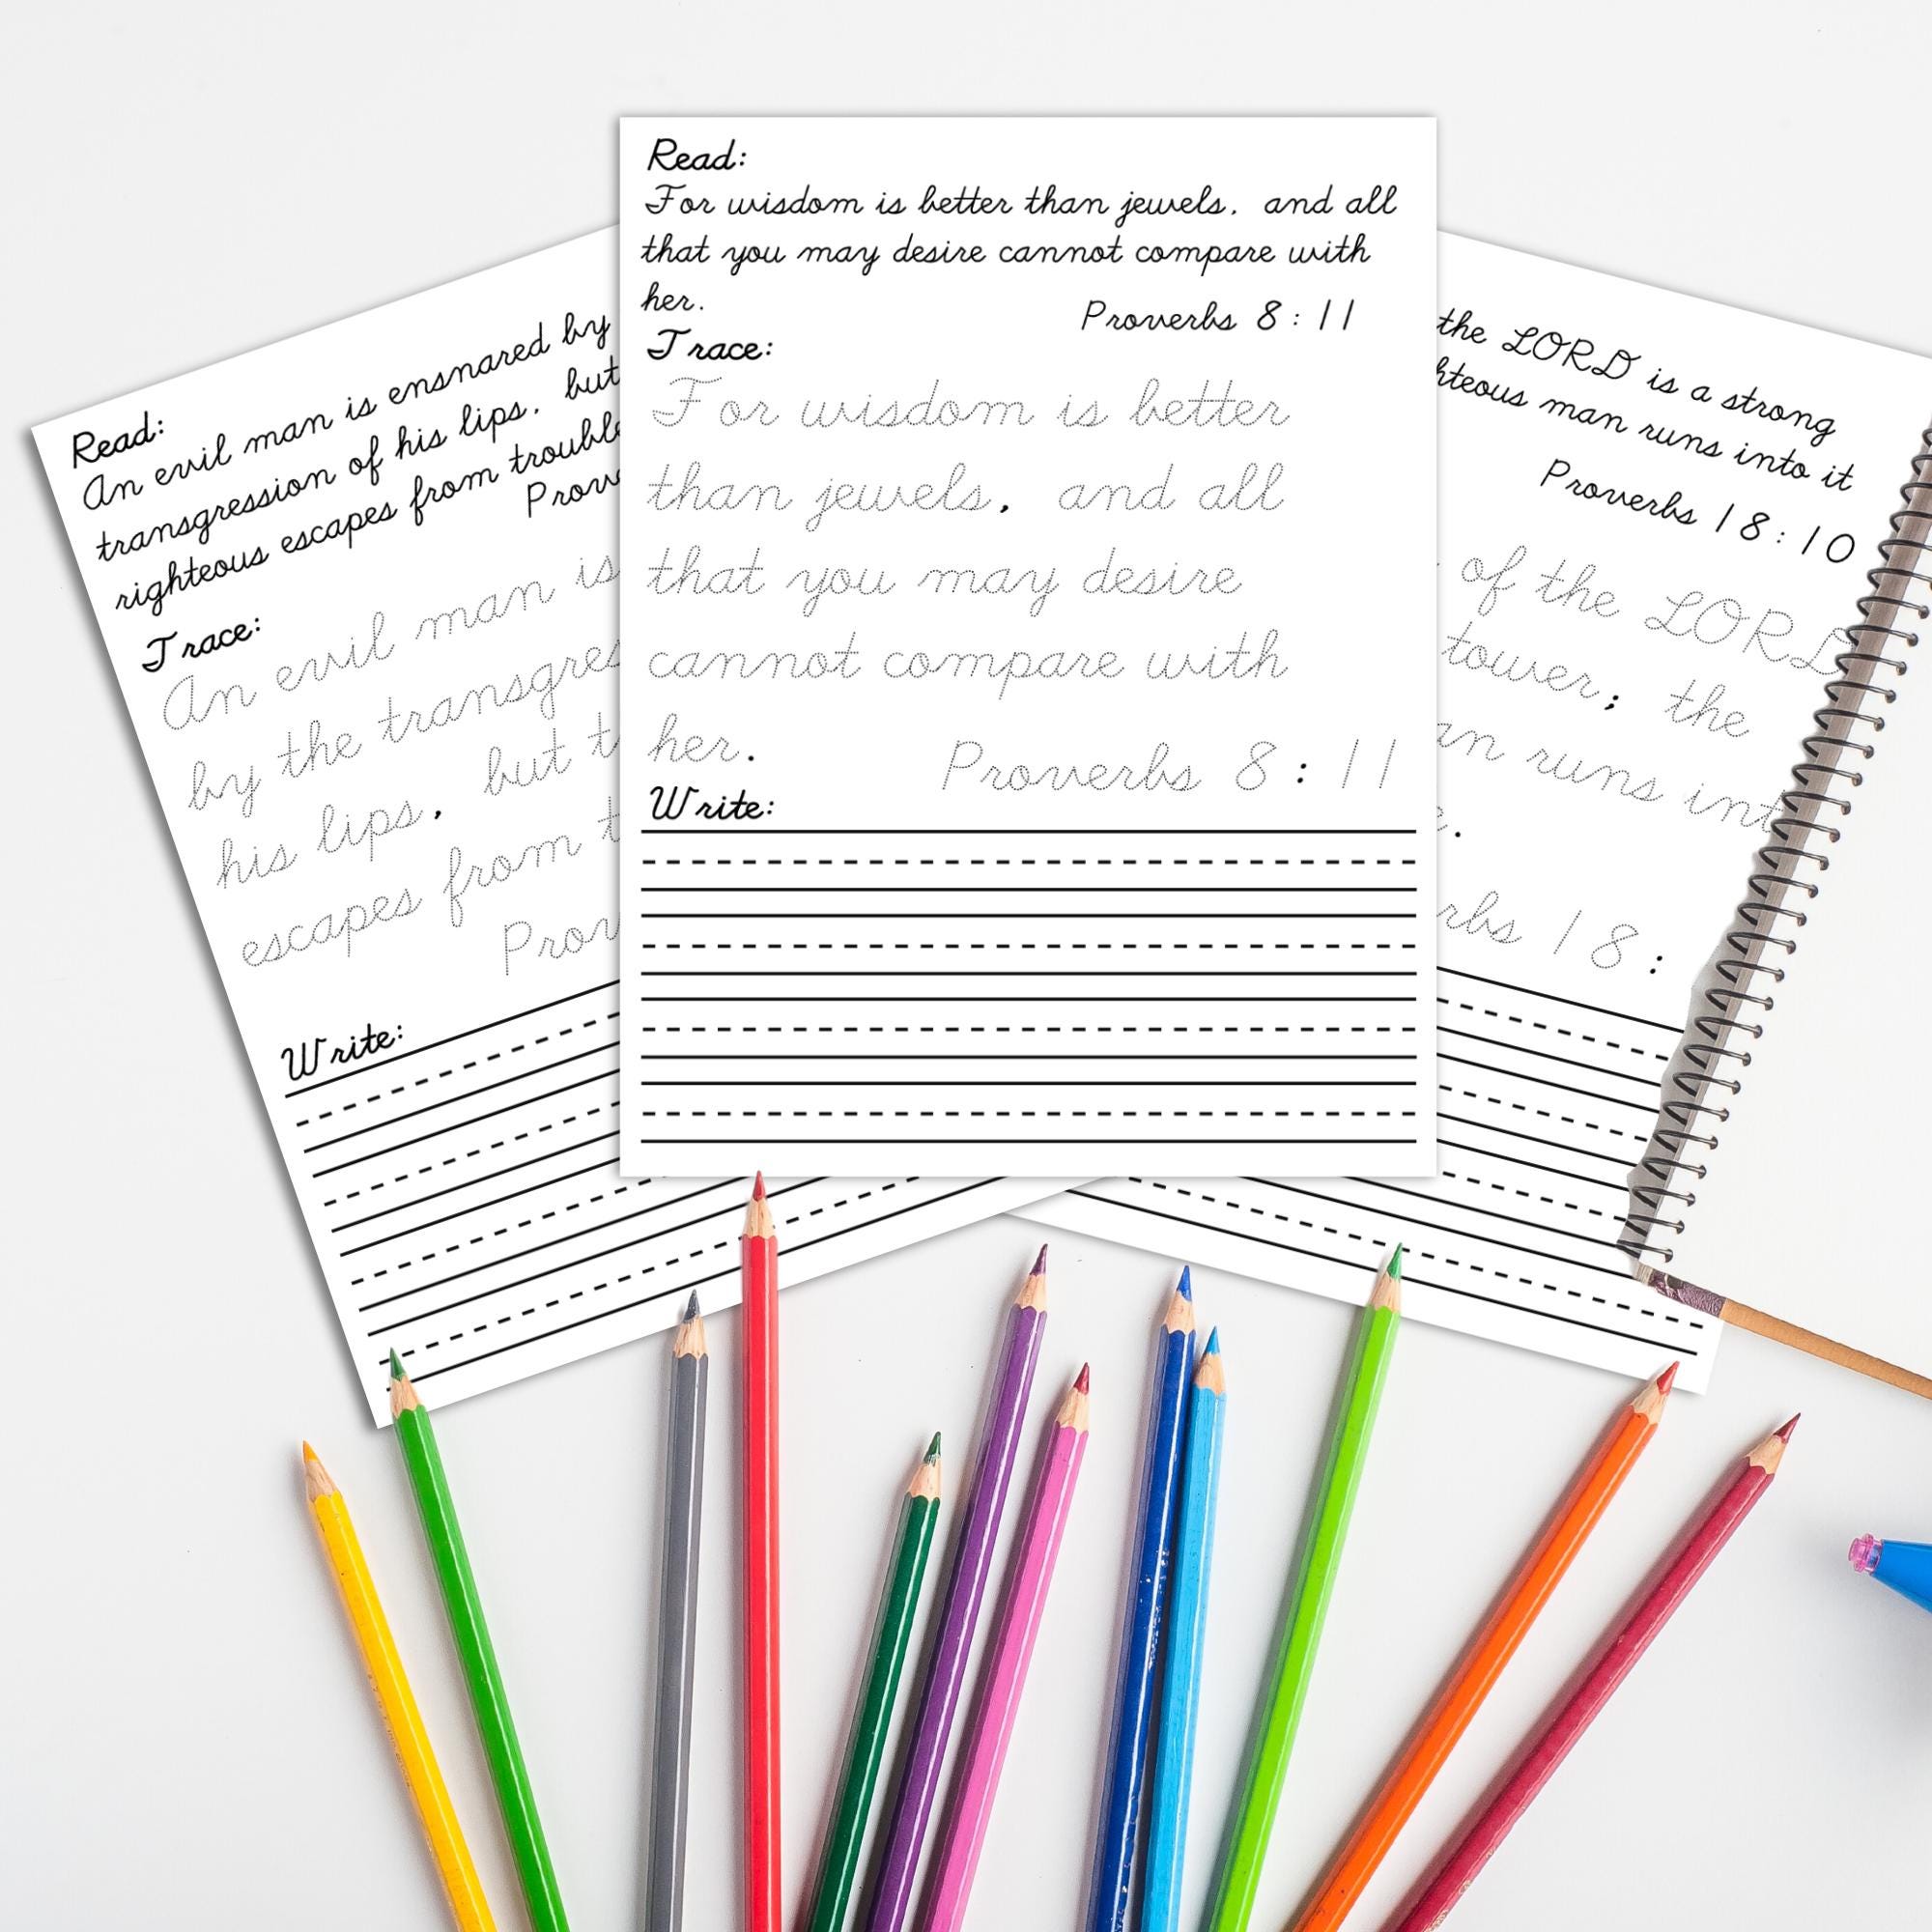 Read:
An evil man is ensnared by
transgression of his lips, but
righteous escapes from trouble
Trace:
An evil man is
by the
his lips, but
escapes from
Write:
Read:
For wisdom is better than jewels, and all
that you may desire cannot compare with
her.
Proverbs 8:11
Trace:
For wisdom is better
than jewels, and all
that you may desire
cannot compare with
her.
Proverbs 8:11
Write:
the LORD is a strong
man runs into it
Proverbs 18:10
of the LORD
tower; the
runs
18: